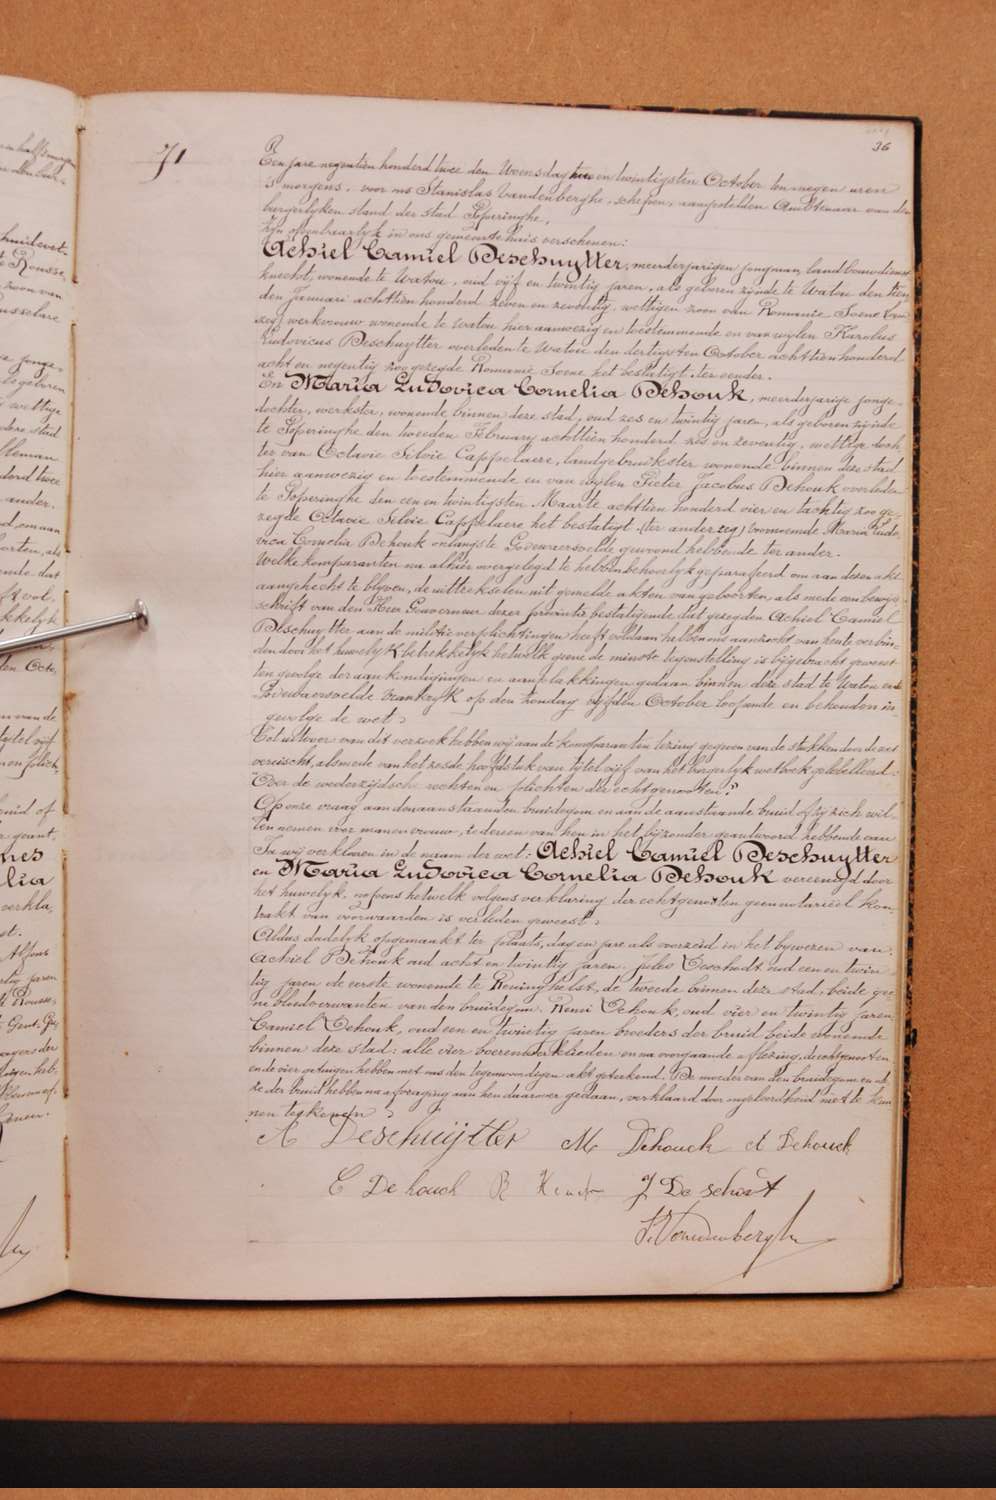 36
71
Ten jare negentien honderd twee den Woensdag twee en twintigsten October ten negen uren
'S morgens, voor ons Stanislas Vandenberghe, schepen, aangestelden Ambtenaar van den
burgerlyken stand der stad Poperinghe,
Zyn openbaarlyk in ons gemeentehuis verschenen:
Achiel Camiel Deschuytter, meerderjarigen jongman, landbouwdienst
knecht, wonende te Watou, oud vyf en twintig jaren, als geboren zynde te Watou den tien
den Januari achttien honderd zeven en zeventig, wettigen zoon van Romanie Soene
werkvrouw wonende te Watou hier aanwezig en toestemmende en van wylen Karolus
Ludovicus Deschuytter overleden te Watou den dertigsten October achttien honderd
acht en negentig zoo gezegde Romanie Soene het bestatigt. ter eender.
En Maria Ludovica Cornelia Dehouk, meerderjarige jonge-
dochter, werkster, wonende binnen deze stad, oud zes en twintig jaren, als geboren zynde
te Poperinghe den tweeden February achttien honderd zes en zeventig, wettige doch
ter van Octavie Silvie Cappelaere, landgebruikster wonende binnen deze stad
hier aanwezig en toestemmende en van wylen Pieter Jacobus Dehouk overleden
te Poperinghe den een en twintigsten Maarte achttien honderd vier en tachtig zoo ge-
zegde Octavie Silvie Cappelaere het bestatigt. (ter ander zeg) voornoemde Maria Ludo-
vica Cornelia Dehouk onlangs te Godewaersvelde gewoond hebbende ter ander.
Welke komparanten na alhier overgelegd te hebben behoorlyk geparafeerd om aan dezen akt
aangehecht te blyven, de uittrekselen uit gemelde akten van geboorten, als mede een bewys
schrift van den Heer Gouverneur dezer provintie bestatigende dat gezegden Achiel Camiel
Deschuytter aan de militie verplichtingen heeft voldaan hebben ons aanzocht van heute verbin-
den door het huwelyk betrekkelyk hetwelk geene de minste tegenstelling is bygebracht geweest
ten gevolge der aankondigingen en aanplakkingen gedaan binnen deze stad te Watou en te
Godewaersvelde Frankryk op den zondag vyfden October loopende en bekonden in-
gevolge de wet,
Tot uitvoer van dit verzoek hebben wy aan de komparanten lezing gegeven van de stukken door de wet
vereischt, als mede van het zesde hoofdstuk van tytel vyf van het burgerlyk wetboek gelibelleerd:
"Over de wederzydsche rechten en plichten der echtgenooten."
Op onze vraag aan den aanstaanden bruidegom en aan de aanstaande bruid of zy zich wil-
len nemen voor man en vrouw, iedereen van hen in het byzonder geantwoord hebbende van
Ja wy verklaren in de naam der wet: Achiel Camiel Deschuytter
en Maria Ludovica Cornelia Dehouk vereenigd door
het huwelyk, nopens hetwelk volgens verklaring der echtgenooten geen notarieel kon-
trakt van voorwaarden is verleden geweest.
Aldus dadelyk opgemaakt ter plaats, dag en jare als voorzeid in het bywezen van
Achiel Dehouk oud acht en twintig jaren, Jules Deschodt oud een en twin
tig jaren de eerste wonende te Reninghelst, de tweede binnen deze stad, beide gee-
ne bloedverwanten van den bruidegom. Remi Dehouk, oud vier en twintig jaren
Camiel Dehouk, oud een en twintig jaren broeders der bruid beide wonende
binnen deze stad: alle vier boerenwerklieden en na voorgaande aflezing, de echtgenooten
en de vier getuigen hebben met ons den tegenwoordigen akt geteekend. De moeder van den bruidegom en de
ze der bruid hebben na afvraging aan hen daarover gedaan, verklaard door ongeleerdheid niet te kun
nen teekenen,
A Deschuijtter M Dehouck A Dehouck
C Dehouck R J Deschodt
St. Vandenberghe